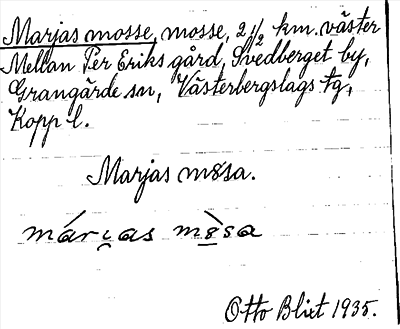 Marjas mosse, mosse, 2 1/2 km. väster
Mellan Per Eriks gård, Svedberget by,
Grangärde sn, Västerbergslags tg,
Kopp l.
Marjas m8sa.
márι̯as m8̀sa
Otto Blixt 1935.